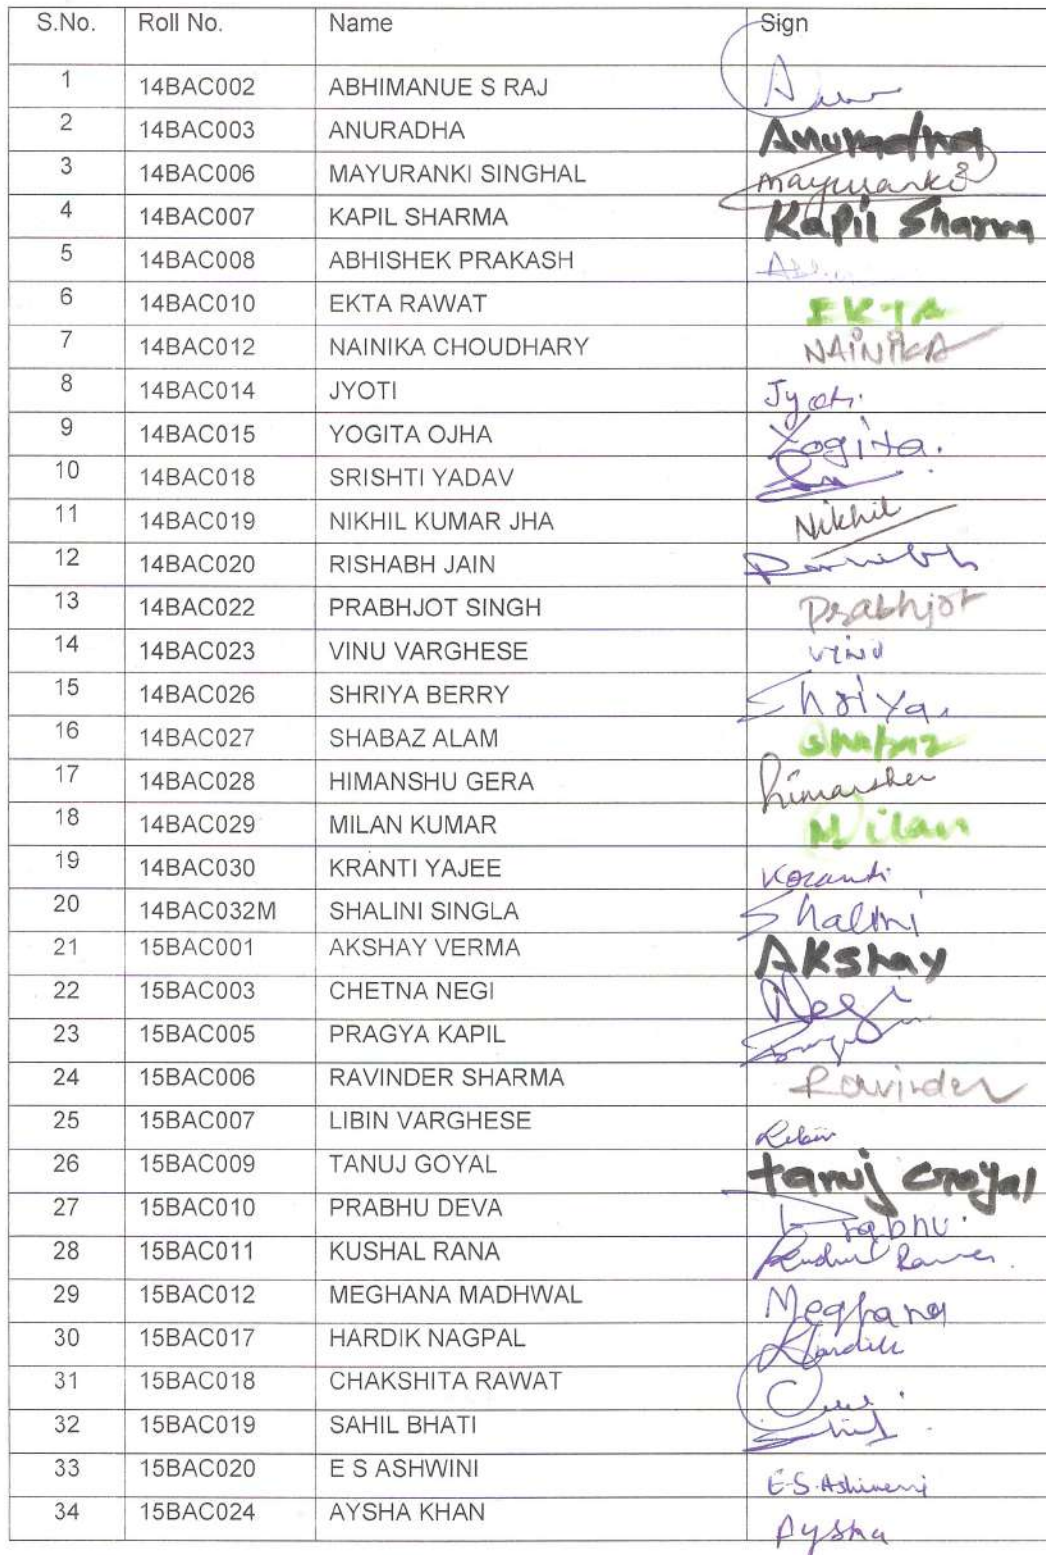 S.No. Roll No. Name Sign
1 14BAC002 ABHIMANUE S RAJ
2 14BAC003 ANURADHA Anuradha
3 14BAC006 MAYURANKI SINGHAL Mayuranki
4 14BAC007 KAPIL SHARMA Kapil Sharma
5 14BAC008 ABHISHEK PRAKASH
6 14BAC010 EKTA RAWAT EKTA
7 14BAC012 NAINIKA CHOUDHARY NAINIKA
8 14BAC014 JYOTI Jyoti
9 14BAC015 YOGITA OJHA Yogita.
10 14BAC018 SRISHTI YADAV
11 14BAC019 NIKHIL KUMAR JHA Nikhil
12 14BAC020 RISHABH JAIN
13 14BAC022 PRABHJOT SINGH Prabhjot
14 14BAC023 VINU VARGHESE VINU
15 14BAC026 SHRIYA BERRY Shriya
16 14BAC027 SHABAZ ALAM Shabaz
17 14BAC028 HIMANSHU GERA himanshu
18 14BAC029 MILAN KUMAR Milan
19 14BAC030 KRANTI YAJEE Kranti
20 14BAC032M SHALINI SINGLA Shalini
21 15BAC001 AKSHAY VERMA AKshay
22 15BAC003 CHETNA NEGI Negi
23 15BAC005 PRAGYA KAPIL
24 15BAC006 RAVINDER SHARMA Ravinder
25 15BAC007 LIBIN VARGHESE Libin
26 15BAC009 TANUJ GOYAL tanuj Goyal
27 15BAC010 PRABHU DEVA Prabhu
28 15BAC011 KUSHAL RANA
29 15BAC012 MEGHANA MADHWAL Meghana
30 15BAC017 HARDIK NAGPAL Hardik
31 15BAC018 CHAKSHITA RAWAT
32 15BAC019 SAHIL BHATI
33 15BAC020 E S ASHWINI E.S.Ashwini
34 15BAC024 AYSHA KHAN Aysha